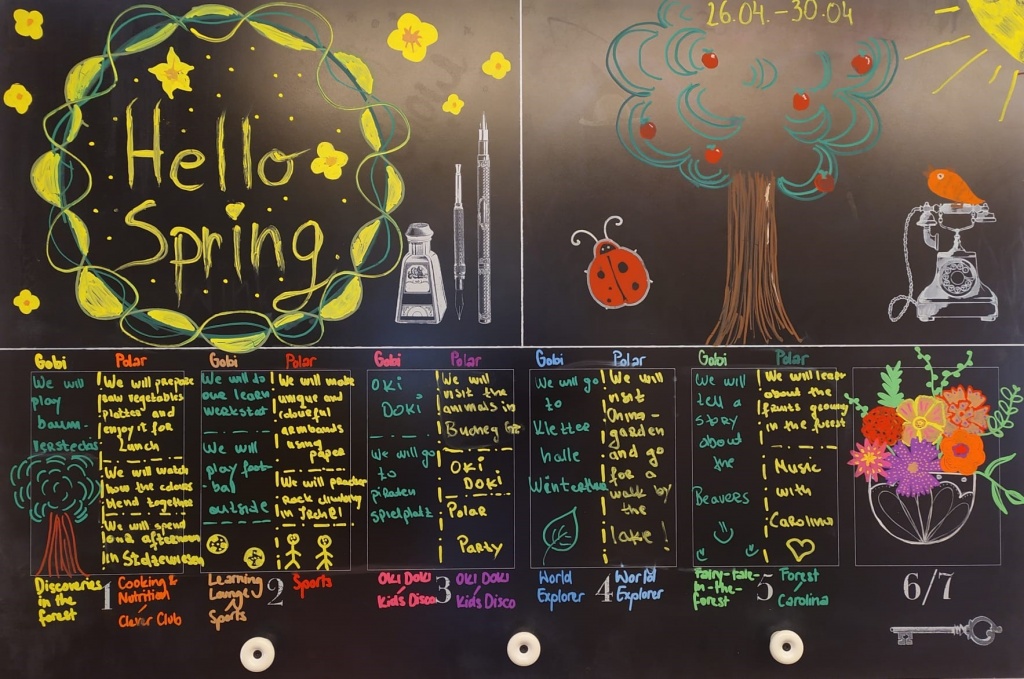 Hello
Spring
26.04.-30.04
Gobi
We will
play
baum-
verstecks
Polar
We will prepare
raw vegetables
platter and
enjoy it for
Lunch
We will watch
how the colours
blend together
We will spend
our afternoon
in Stelzewiesen
Gobi
We will do
our learn
werkstatt
We will
play foot-
ball
outside
Polar
We will make
unique and
colourful
armbands
using
paper
We will practice
Rock climbing
in Techel
Gobi
OKi
DOKi
We will go
to
piraten
spielplatz
Polar
We will
visit the
animals in
OKi
DOKi
Polar
Party
Gobi
We will go
to
Kletter
halle
Winterthur
Polar
We will
visit
China-
garden
and go
for a
walk by
the
lake!
Gobi
We will
tell a
story
about
the
Beavers
Polar
We will learn
about the
plants growing
in the forest
Music
with
Carolina
Discoveries
in the
forest
1
Cooking &
Nutrition
Clever Club
Learning
Lounge
Sports
2
Sports
Oki Doki
Kids Disco
3
Oki Doki
Kids Disco
World
Explorer
4
World
Explorer
Fairy-tale-
in-the-
forest
5
Forest
Carolina
6/7